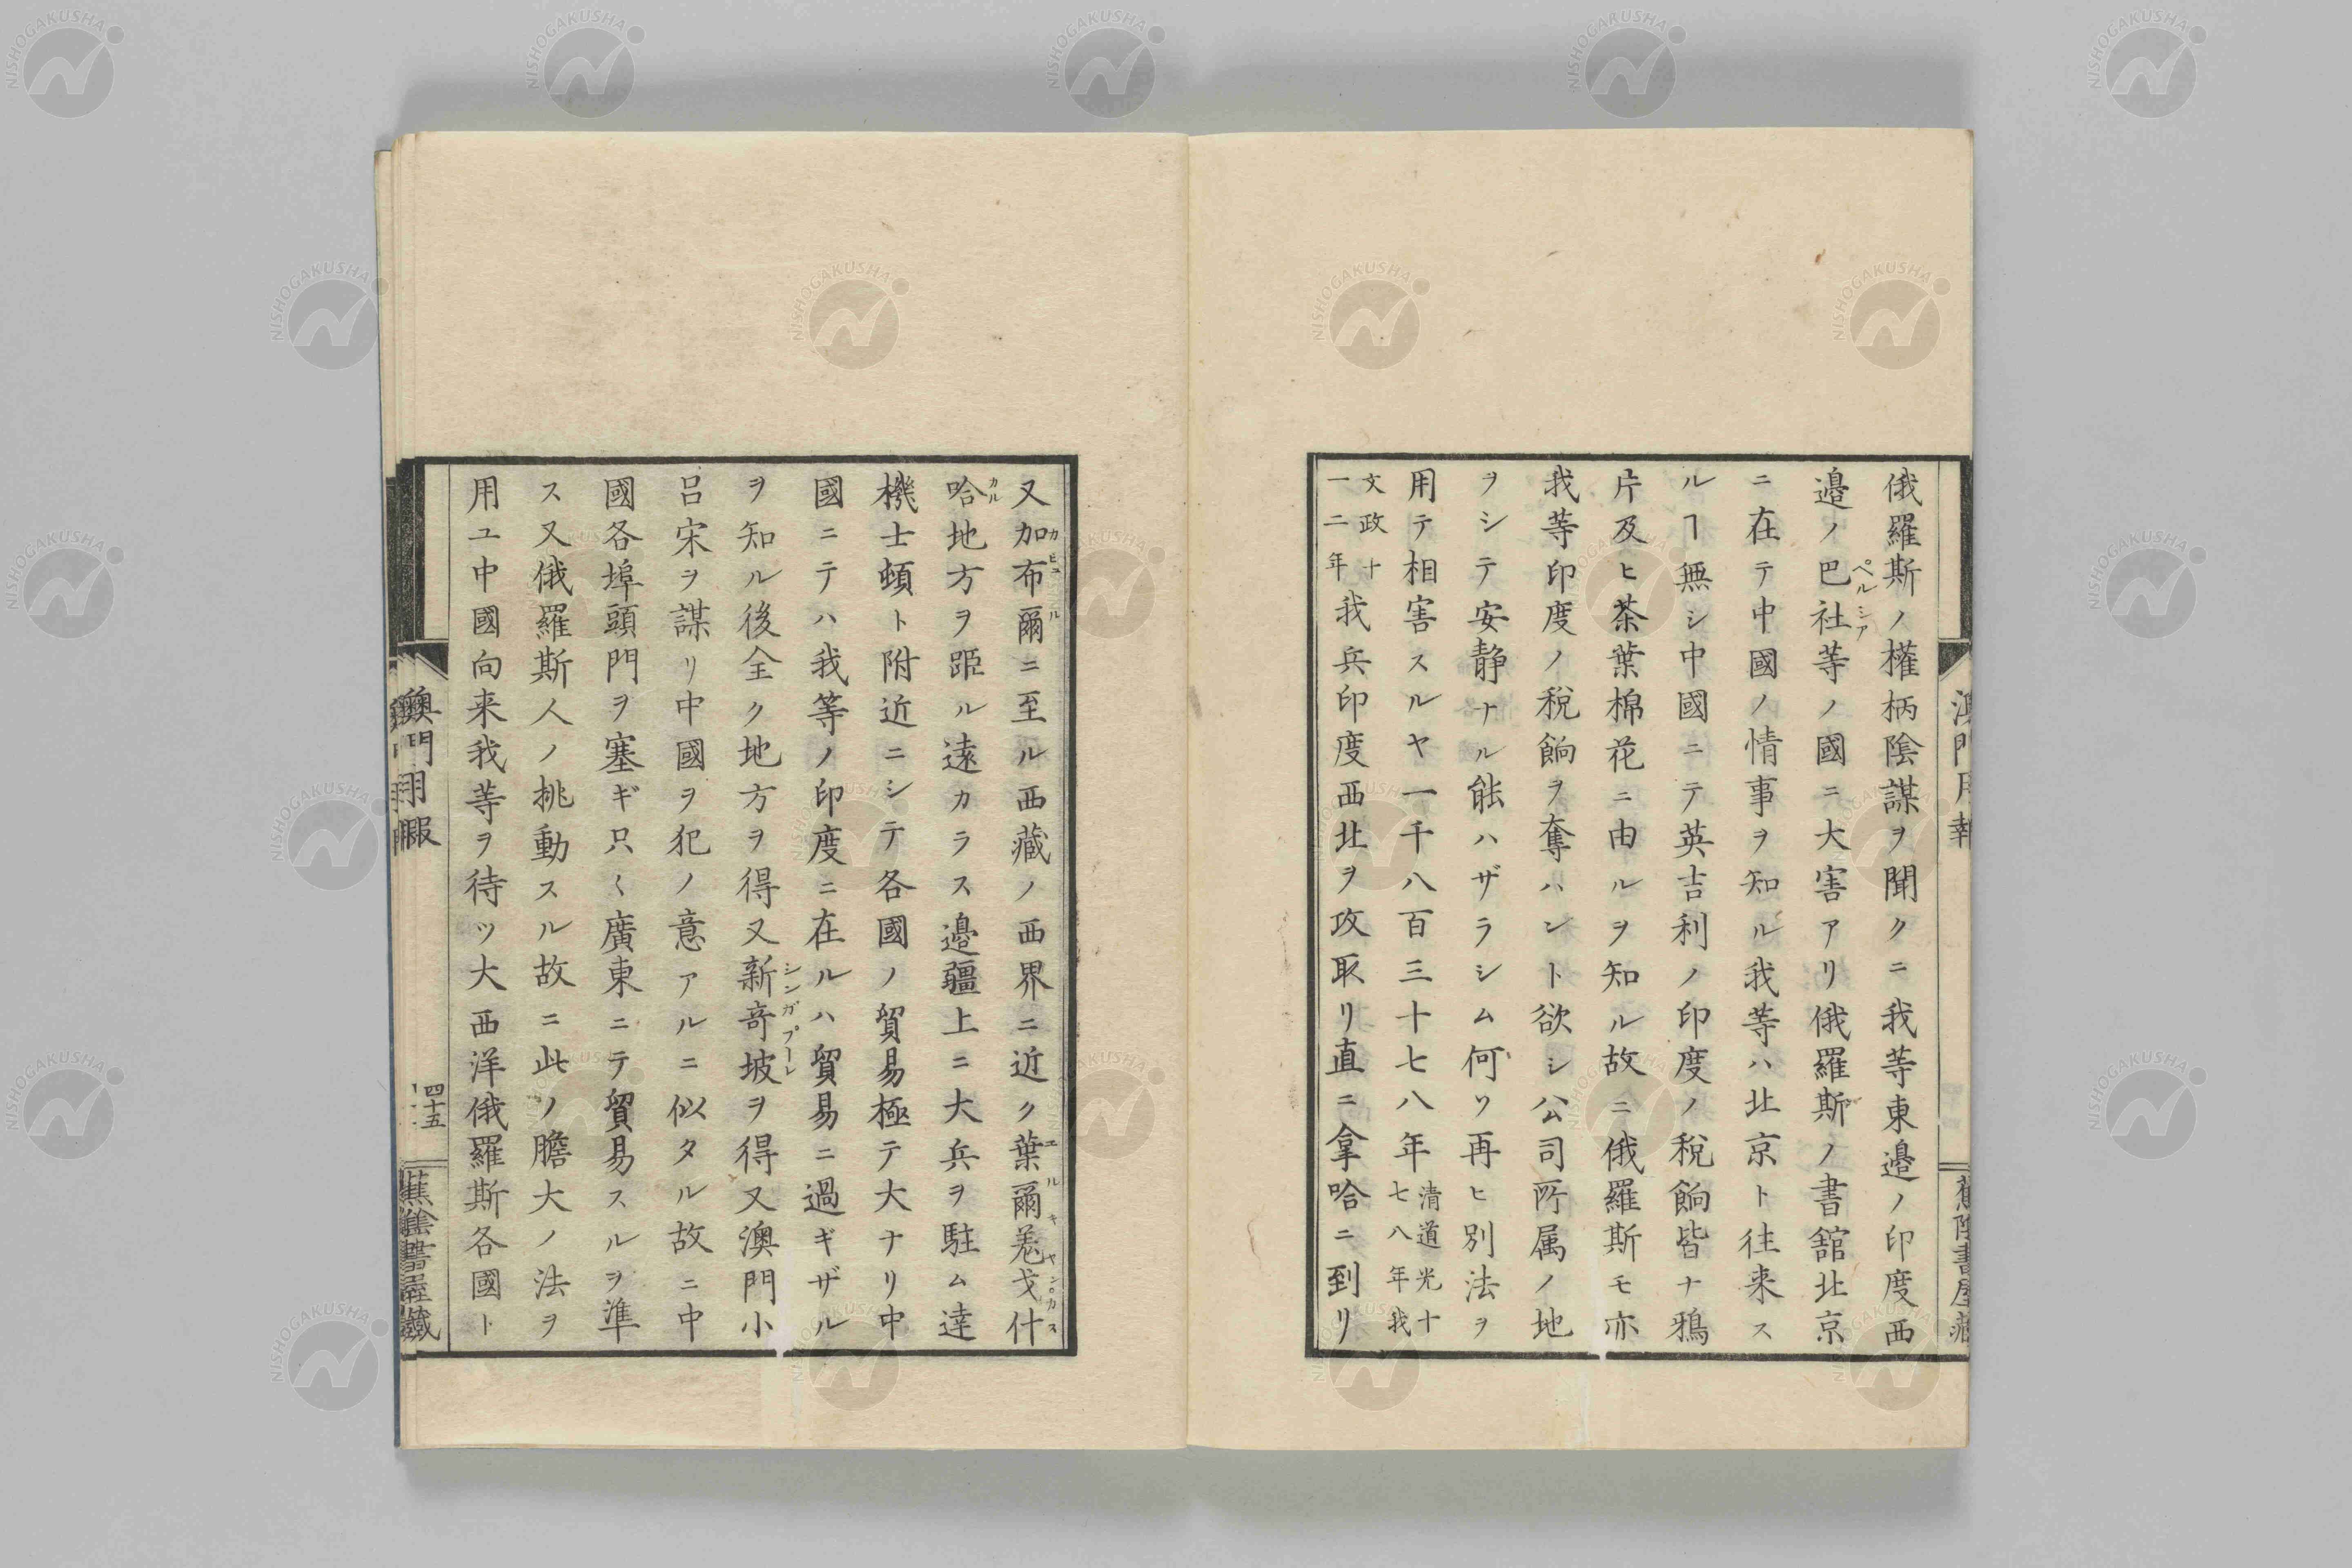 俄羅斯ノ權柄陰謀ヲ聞クニ我等東邉ノ印度西
邉ノ巴社等ノ國ニ大害アリ俄羅斯ノ書舘北京
ペルシア
ニ在テ中國ノ情事ヲ知ル我等ハ北京ト往来ス
ルヿ無シ中國ニテ英吉利ノ印度ノ税餉皆ナ鴉
片及ヒ茶葉棉花ニ由ルヲ知ル故ニ俄羅斯モ亦
我等印度ノ税餉ヲ奪ハント欲シ公司所属ノ地
ヲシテ安静ナル能ハザラシム何ソ再ヒ別法ヲ
用テ相害スルヤ一千八百三十七八年清道光十七八年我
文政十一二年我兵印度西北ヲ攻取リ直ニ拿哈ニ到リ
又加布爾ニ至ル西藏ノ西界ニ近ク葉爾羌戈什
カビュル
エルキヤン。カス
哈地方ヲ距ル遠カラス邉疆上ニ大兵ヲ駐ム達
カル
機士頓ト附近ニシテ各國ノ貿易極テ大ナリ中
國ニテハ我等ノ印度ニ在ルハ貿易ニ過ギザル
ヲ知ル後全ク地方ヲ得又新竒坡ヲ得又澳門小
シンガプーレ
呂宋ヲ謀リ中國ヲ犯ノ意アルニ似タル故ニ中
國各埠頭門ヲ塞ギ只〱廣東ニテ貿易スルヲ準
ス又俄羅斯人ノ挑動スル故ニ此ノ膽大ノ法ヲ
用ユ中國向来我等ヲ待ツ大西洋俄羅斯各國ト
澳門月報
四十五
蕉陰書屋藏